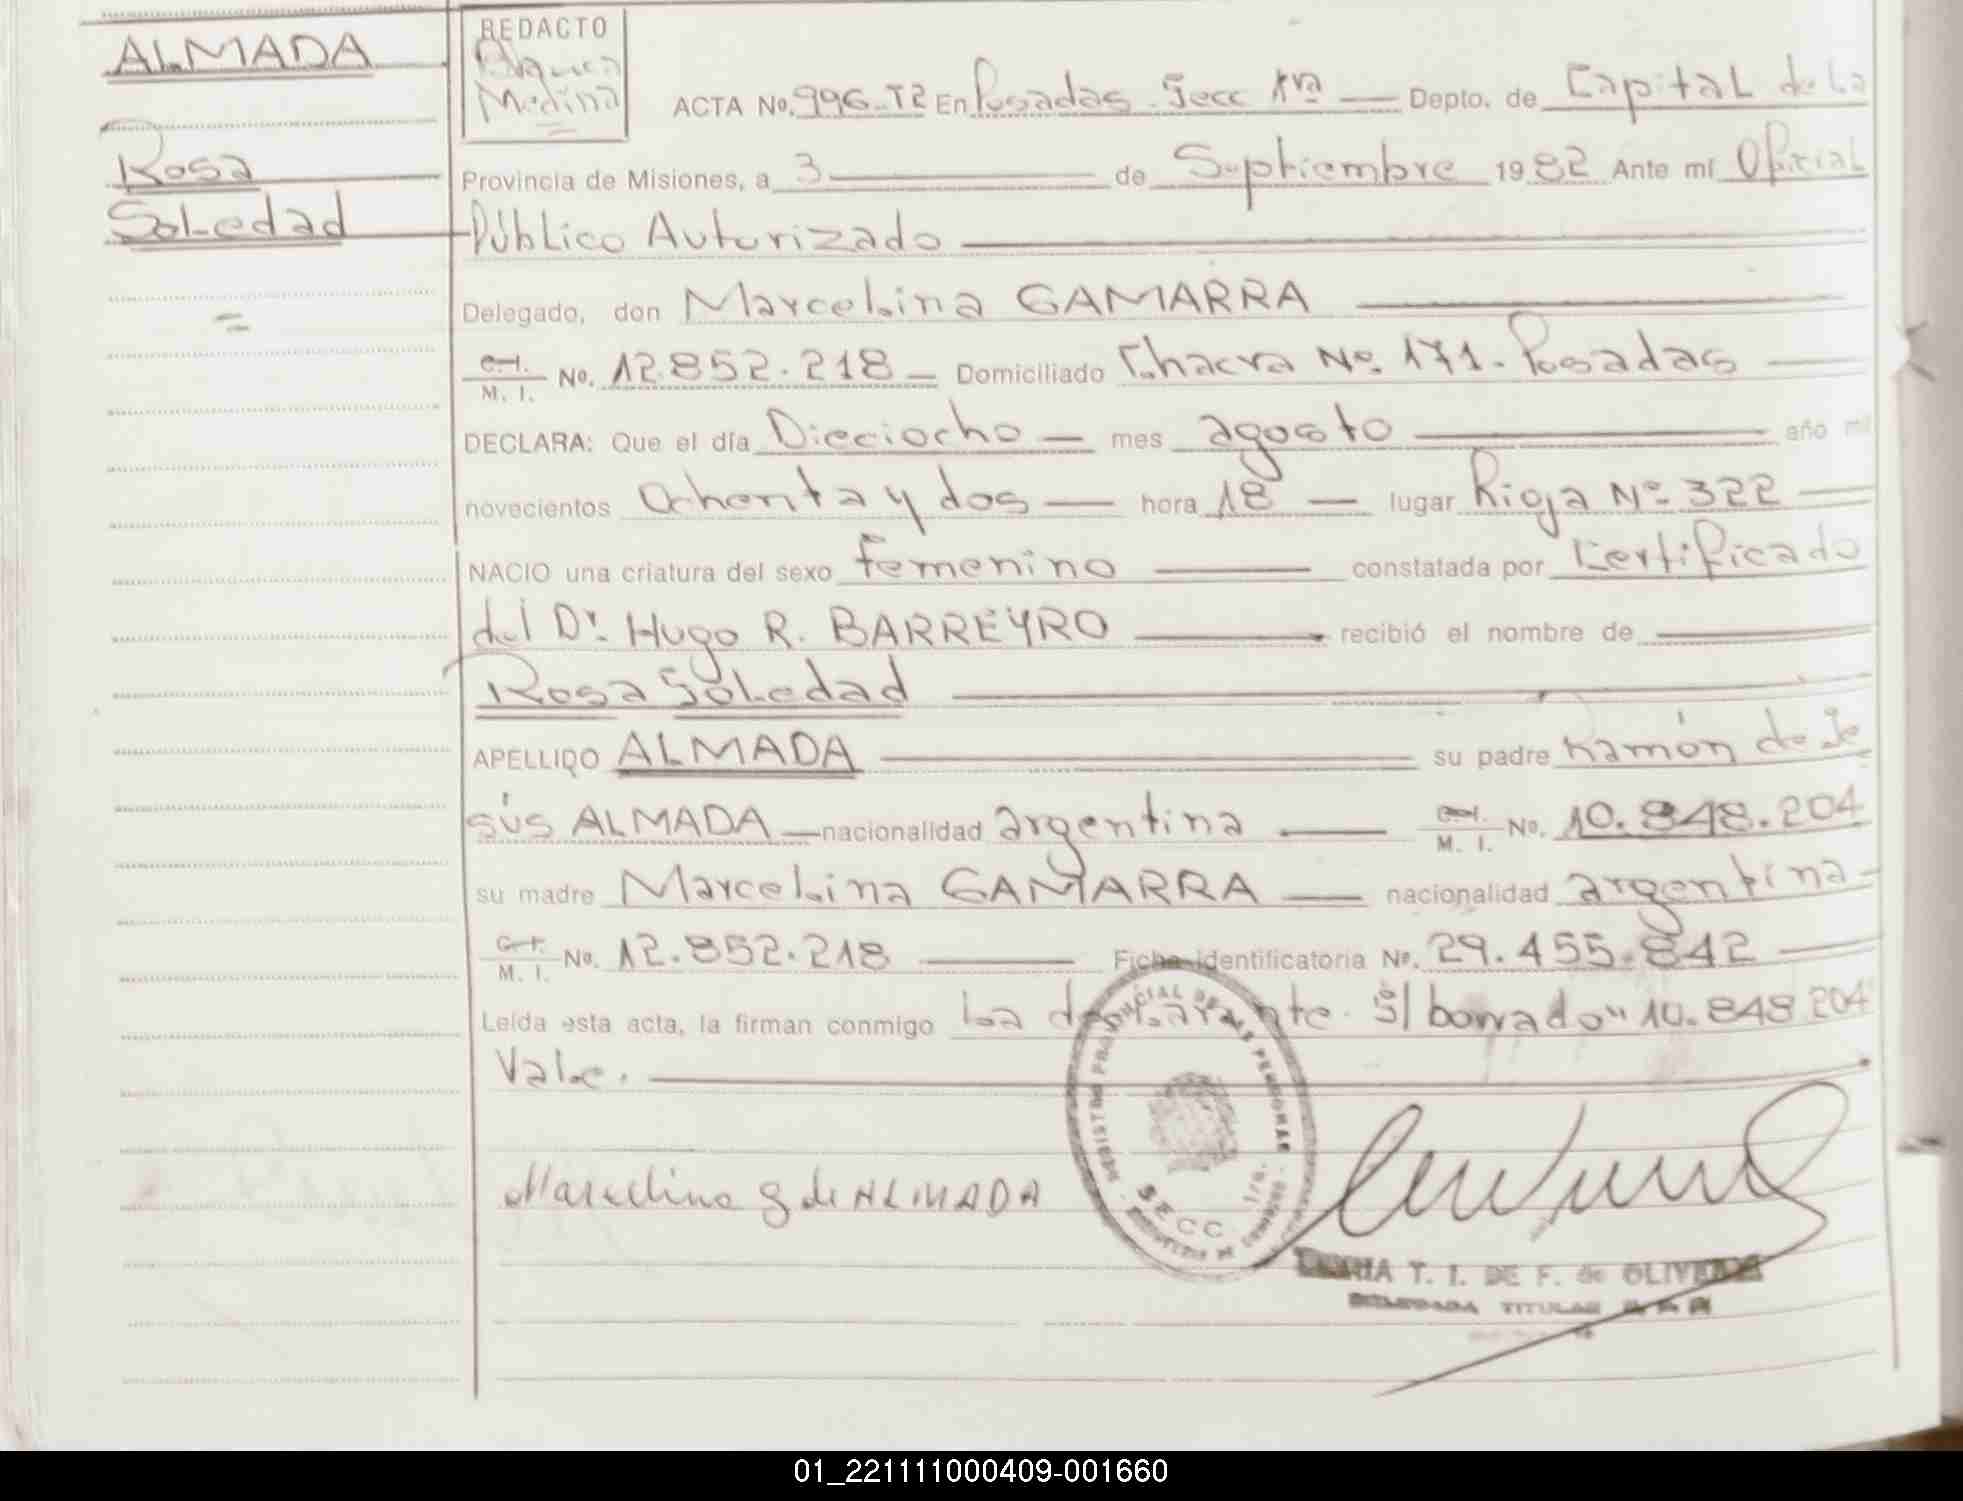 ALMADA
Rosa
Soledad
REDACTO
Medina
ACTA No. 996-T2 En Posadas Secc 1ra Depto. de Capital de la
Provincia de Misiones, a 3 de Septiembre 1982 Ante mí Oficial
Público Autorizado
Delegado, don Marcelina GAMARRA
C.I. M. I. No. 12.852.218 Domiciliado Chacra Nº 171. Posadas
DECLARA: Que el día Dieciocho mes agosto año mil
novecientos Ochenta y dos hora 18 lugar Rioja Nº 322
NACIO una criatura del sexo femenino constatada por Certificado
del Dr. Hugo R. BARREYRO recibió el nombre de
Rosa Soledad
APELLIDO ALMADA su padre Ramón de Je
sús ALMADA nacionalidad argentina C.I. M. I. No. 10.848.204
su madre Marcelina GAMARRA nacionalidad argentina
C.I. M. I. No. 12.852.218 Ficha identificatoria No. 29.455.842
Leída esta acta, la firman conmigo la declarante. S/ borrado" 10.848.204
Vale.
Marcelina G de ALMADA
SECC. 1ra.
T. I. DE F. de OLIVERA
TITULAR
01_221111000409-001660